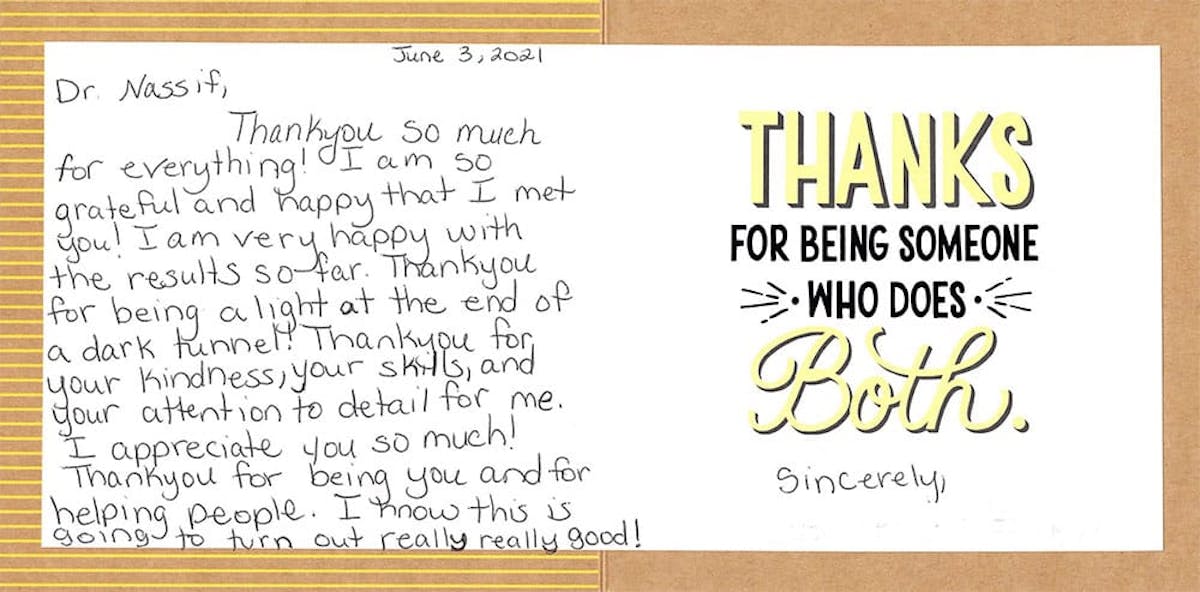 June 3, 2021
Dr. Nassif,
Thankyou so much
for everything! I am so
grateful and happy that I met
you! I am very happy with
the results so far. Thankyou
for being a light at the end of
a dark tunnel! Thankyou for
your kindness, your skills, and
your attention to detail for me.
I appreciate you so much!
Thankyou for being you and for
helping people. I know this is
going to turn out really really good!
THANKS
FOR BEING SOMEONE
WHO DOES
Both.
Sincerely,